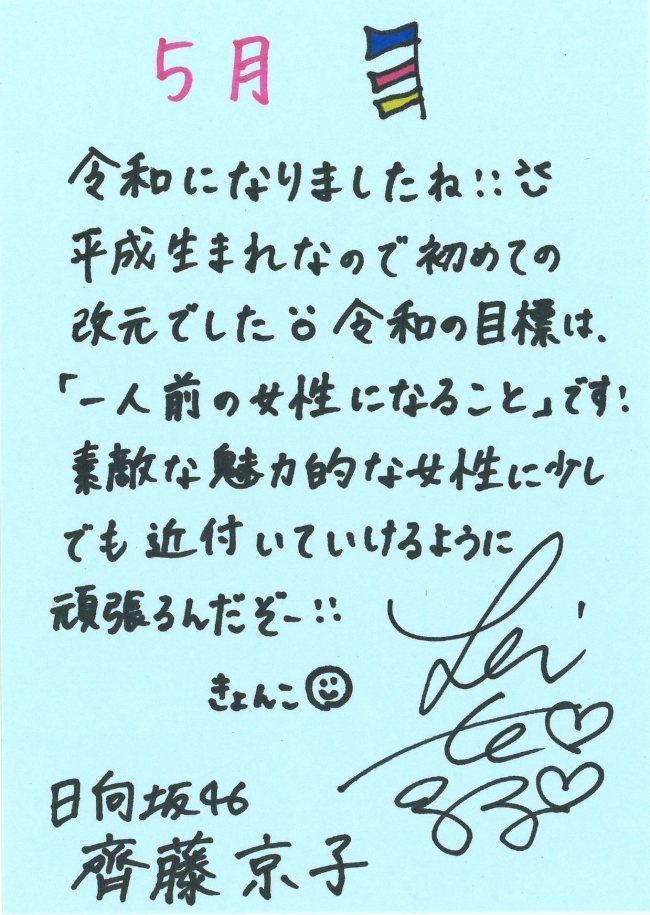 5月
令和になりましたね!!
平成生まれなので初めての
改元でした 令和の目標は、
「一人前の女性になること」です!
素敵な魅力的な女性に少し
でも近付いていけるように
頑張るんだぞー!!
きょんこ
日向坂46
齊藤京子